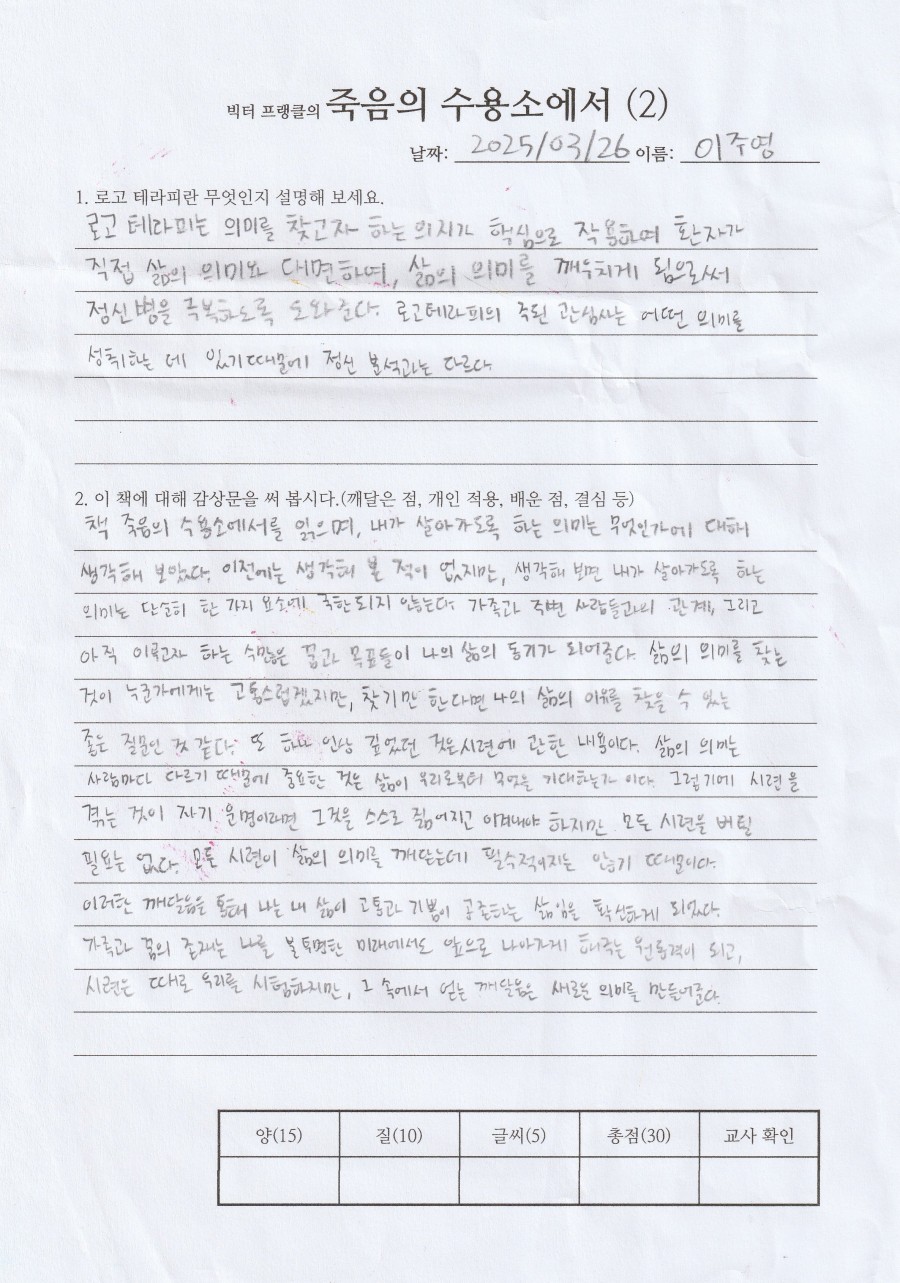 빅터 프랭클의 죽음의 수용소에서 (2)
날짜: 2025/03/26 이름: 이주영
1. 로고 테라피란 무엇인지 설명해 보세요.
로고 테라피는 의미를 찾고자 하는 의지가 핵심으로 작용하며 환자가
직접 삶의 의미와 대면하여, 삶의 의미를 깨우치게 됨으로써
정신병을 극복하도록 도와준다. 로고테라피의 주된 관심사는 어떤 의미를
성취하는 데 있기때문에 정신 분석과는 다르다.
2. 이 책에 대해 감상문을 써 봅시다.(깨달은 점, 개인 적용, 배운 점, 결심 등)
책 죽음의 수용소에서를 읽으며, 내가 살아가도록 하는 의미는 무엇인가에 대해
생각해 보았다. 이전에는 생각해 본 적이 없지만, 생각해 보면 내가 살아가도록 하는
의미는 단순히 한 가지 요소에 국한되지 않는다. 가족과 주변 사람들과의 관계, 그리고
아직 이루고자 하는 수많은 꿈과 목표들이 나의 삶의 동기가 되어준다. 삶의 의미를 찾는
것이 누군가에게는 고통스럽겠지만, 찾기만 한다면 나의 삶의 이유를 찾을 수 있는
좋은 질문인 것 같다. 또 하나 인상 깊었던 것은 시련에 관한 내용이다. 삶의 의미는
사람마다 다르기 때문에 중요한 것은 삶이 우리로부터 무엇을 기대하는가 이다. 그렇기에 시련을
겪는 것이 자기 운명이라면 그것을 스스로 짊어지고 이겨내야 하지만 모든 시련을 버틸
필요는 없다. 모든 시련이 삶의 의미를 깨닫는데 필수적이지는 않기 때문이다.
이러한 깨달음을 통해 나는 내 삶이 고통과 기쁨이 공존하는 삶임을 확신하게 되었다.
가족과 꿈의 존재는 나를 불투명한 미래에서도 앞으로 나아가게 해주는 원동력이 되고,
시련은 때로 우리를 시험하지만, 그 속에서 얻는 깨달음은 새로운 의미를 만들어준다.
양(15) 질(10) 글씨(5) 총점(30) 교사 확인